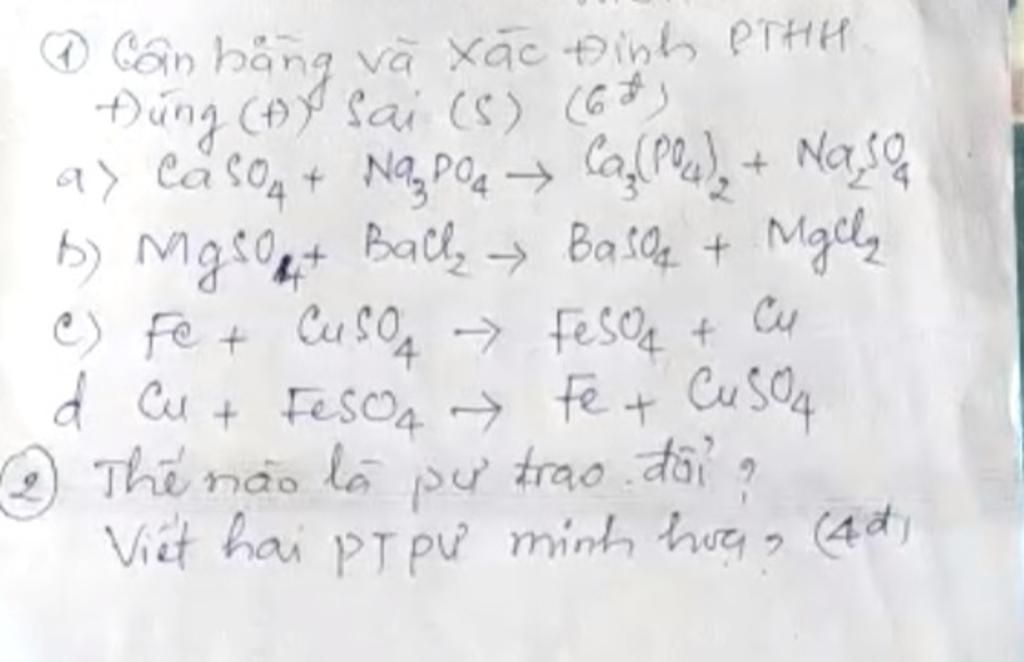 ① Cân bằng và xác định PTHH
Đúng (Đ) Sai (S) (6đ)
a) CaSO₄ + Na₃PO₄ → Ca₃(PO₄)₂ + Na₂SO₄
b) MgSO₄ + BaCl₂ → BaSO₄ + MgCl₂
c) Fe + CuSO₄ → FeSO₄ + Cu
d Cu + FeSO₄ → Fe + CuSO₄
② Thế nào là pư trao đổi?
Viết hai PTPƯ minh hoạ? (4đ)